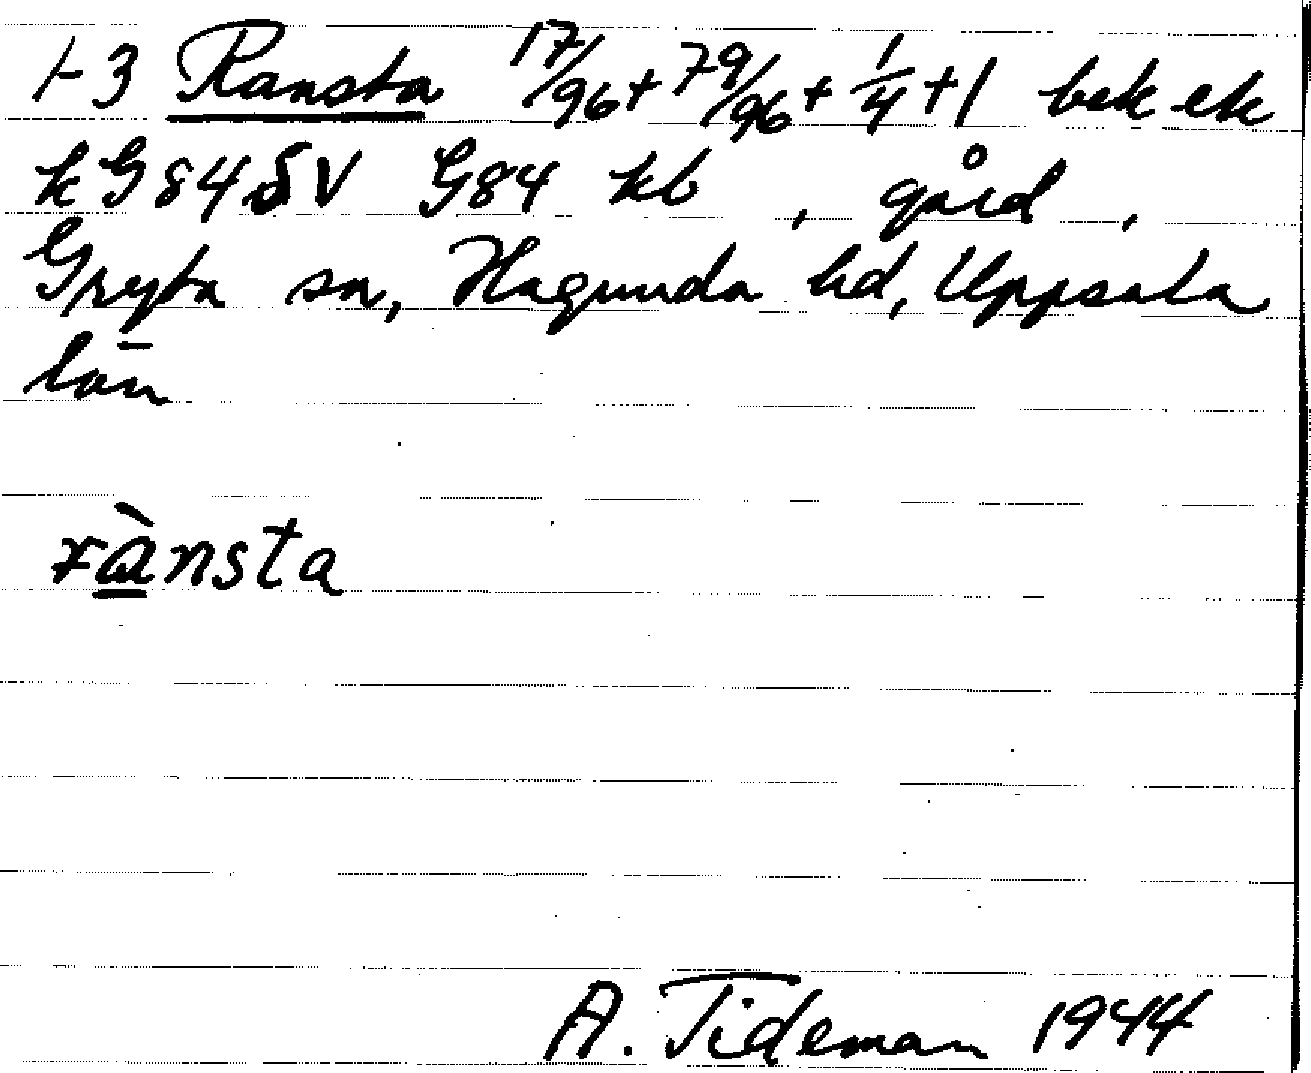 1-3 Ransta 17/96 + 79/96 + 1/4 + 1 bek ek
k G84SV G84 kb , gård ,
Gryta sn, Hagunda hd, Uppsala
län
rànsta
A. Tideman 1944